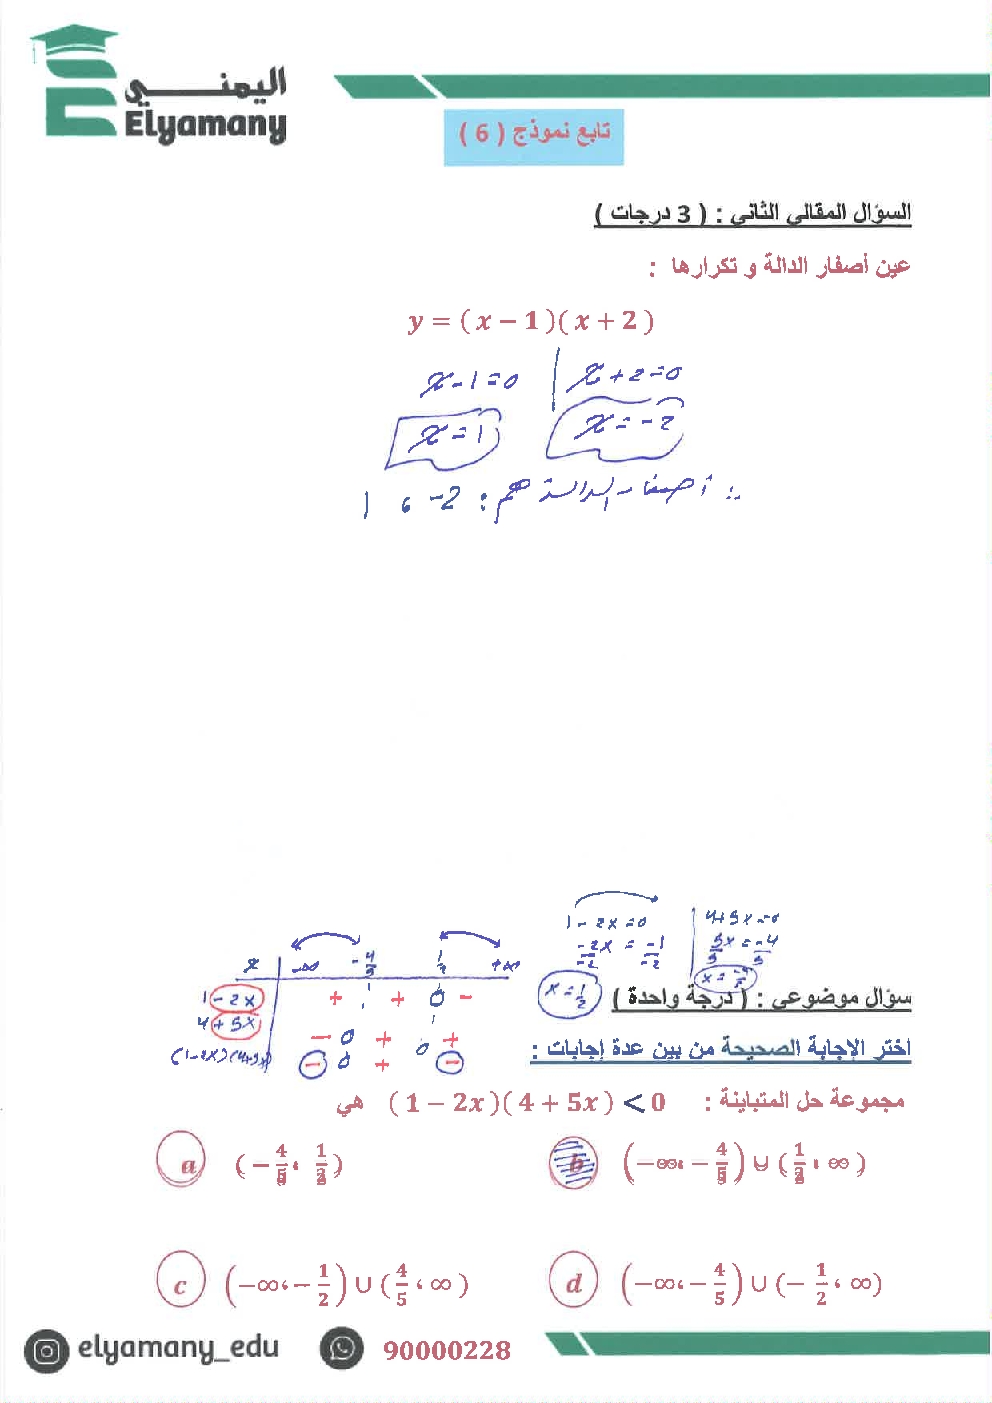 اليمني
Elyamany
تابع نموذج ( 6 )
السؤال المقالي الثاني : ( 3 درجات )
عين أصفار الدالة و تكرارها :
y = ( x − 1 )( x + 2 )
x - 1 = 0 | x + 2 = 0
x = 1 x = -2
∴ أصفار الدالة هم : -2 ، 1
1 - 2x = 0 | 4 + 5x = 0
-2x/-2 = -1/-2 5x/5 = -4/5
x = 1/2 x = -4/5
x | -∞ -4/5 1/2 +∞
1 - 2x + + 0 -
4 + 5x - 0 + +
(1-2x)(4+5x) - 0 + 0 -
سؤال موضوعي : ( درجة واحدة )
اختر الإجابة الصحيحة من بين عدة إجابات :
مجموعة حل المتباينة : ( 1 − 2x )( 4 + 5x ) < 0 هي
a ( − 4/5 ، 1/2 )
b ( −∞، − 4/5 ) ∪ ( 1/2 ، ∞ )
c ( −∞، − 1/2 ) ∪ ( 4/5 ، ∞ )
d ( −∞، − 4/5 ) ∪ (− 1/2 ، ∞)
elyamany_edu 90000228